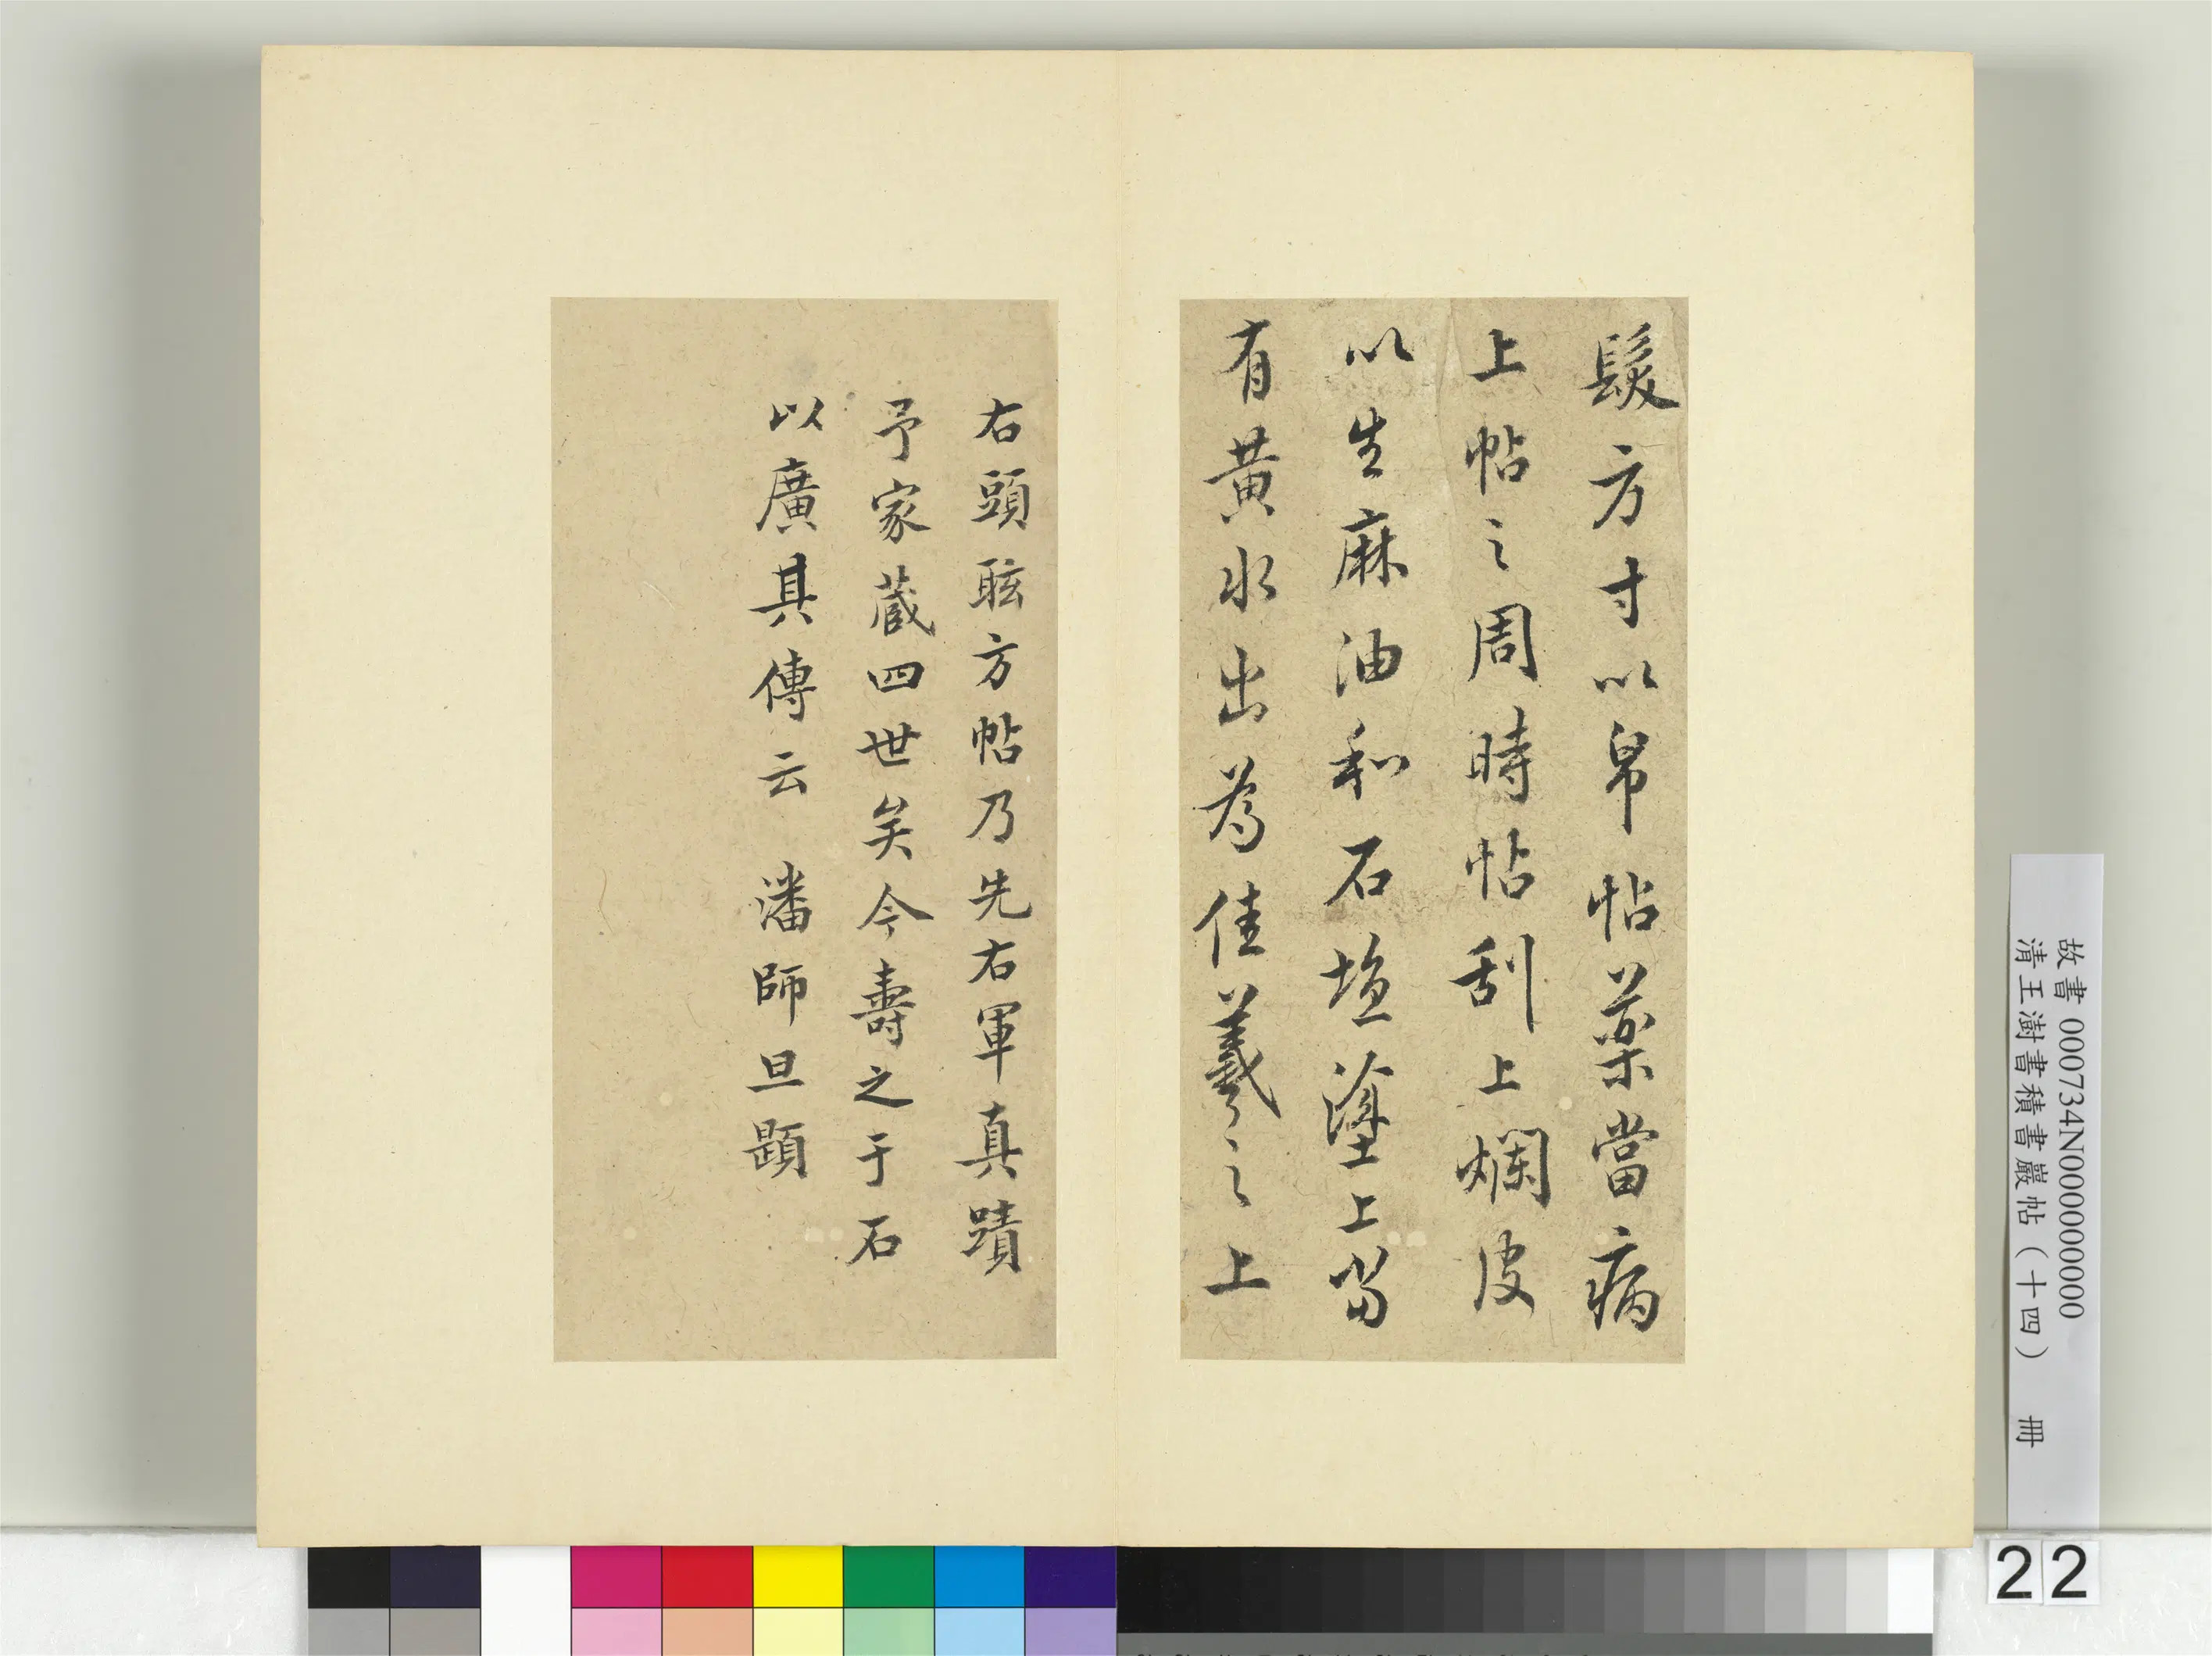 髮方寸以帛帖藥當病
上帖之周時帖刮上爛皮
以生麻油和石塩塗上當
有黃水出為佳羲之上
右頭眩方帖乃先右軍真蹟
予家藏四世矣今壽之于石
以廣其傳云 潘師旦題
故書 000734N000000000
清王澍書積書巖帖（十四） 冊
22